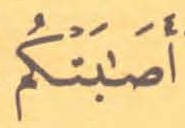 أَصَٰبَتۡكُم